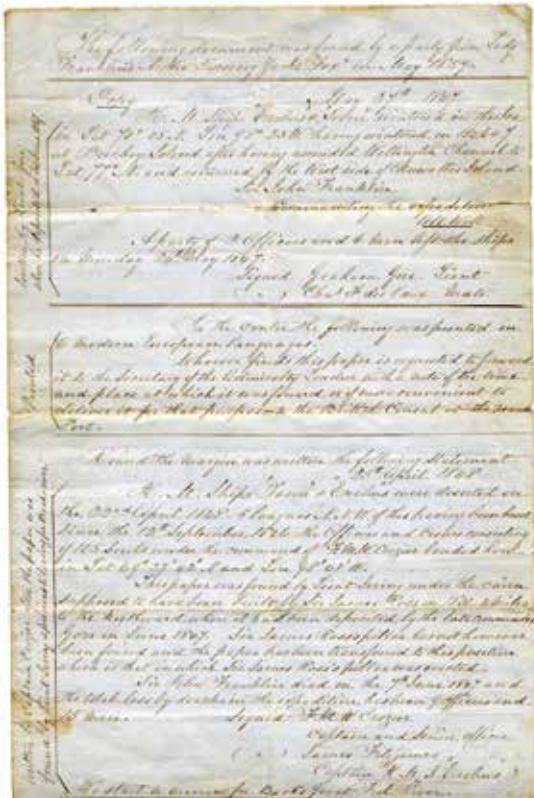 The following document was found by a party from Lady
Franklin's Arctic Discovery Yacht Fox in May 1859.
Copy May 28th 1847
H. M. Ships Erebus and Terror Wintered in the Ice
in Lat 70° 05' N. Lon 98° 23' W having wintered in 1846-7
at Beechey Island after having ascended Wellington Channel to
Lat 77° N. and returned by the West side of Cornwallis Island
Sir John Franklin
Commanding the expedition
All Well
A party of 2 Officers and 6 Men left the Ships
on Monday 24th May 1847.
Signed Graham Gore Lieut
Chas F Des Vaux Mate.
In the centre the following was printed in
6 modern European languages.
Whoever finds this paper is requested to forward
it to the Secretary of the Admiralty London with a note of the time
and place at which it was found or if more convenient to
deliver it for that purpose to the British Consul at the nearest
Port.
Printed
Round the margin was written the following Statement
25th April 1848
H. M. Ships Terror & Erebus were deserted on
the 22nd April 1848 5 leagues N.N.W of this having been beset
since the 12th September 1846 the Officers and crews consisting
of 105 Souls under the command of F. R. M. Crozier landed here
in Lat 69° 37' 42" N and Lon 98° 41' W.
This paper was found by Lieut Irving under the cairn
supposed to have been built by Sir James Ross in 1831 4 miles
to the Northward where it had been deposited by the late commander
Gore in June 1847. Sir James Ross's pillar has not however
been found and the paper has been transferred to this position
which is that in which Sir James Ross's pillar was erected.
Sir John Franklin died on the 7th June 1847 and
the total loss by deaths in the expedition has been 9 officers and
15 men.
Signed F. R. M. Crozier
Captain and Senior officer
James Fitzjames
Captain H. M. S. Erebus
We start to morrow for Back's Great Fish River